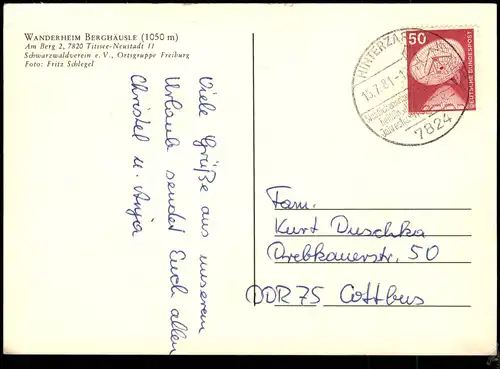 WANDERHEIM BERGHÄUSLE (1050 m)
Am Berg 2, 7820 Titisee-Neustadt 11
Schwarzwaldverein e. V., Ortsgruppe Freiburg
Foto: Fritz Schlegel
Viele Grüße aus unserem
Urlaub sendet Euch allen
Christel u. Anja
HINTERZAR
15.7.81-1
7824
50
DEUTSCHE BUNDESPOST
Fam.
Kurt Duschka
Drebkauerstr. 50
DDR 75 Cottbus